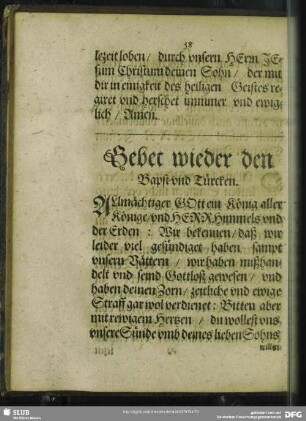 58
lezeit loben / durch vnsern HErrn JE-
sum Christum deinen Sohn / der mit
dir in einigkeit des heiligen Geistes re-
giret vnd herschet immmer vnd ewig-
lich / Amen.
Gebet wieder den
Bapst vnd Türcken.
ALlmächtiger GOtt ein König aller
Könige / vnd HERR Himmels vnd
der Erden : Wir bekennen / daß wir
leider viel gesündiget haben sampt
vnsern Vättern / wir haben mißhan-
delt vnd seind Gottloß gewesen / vnd
haben deinen Zorn / zeitliche vnd ewige
Straff gar wol verdienet : Bitten aber
mit rewigem Hertzen / du wollest vns
vnsere Sünde vmb deines lieben Sohns
willen
SLUB
DFG